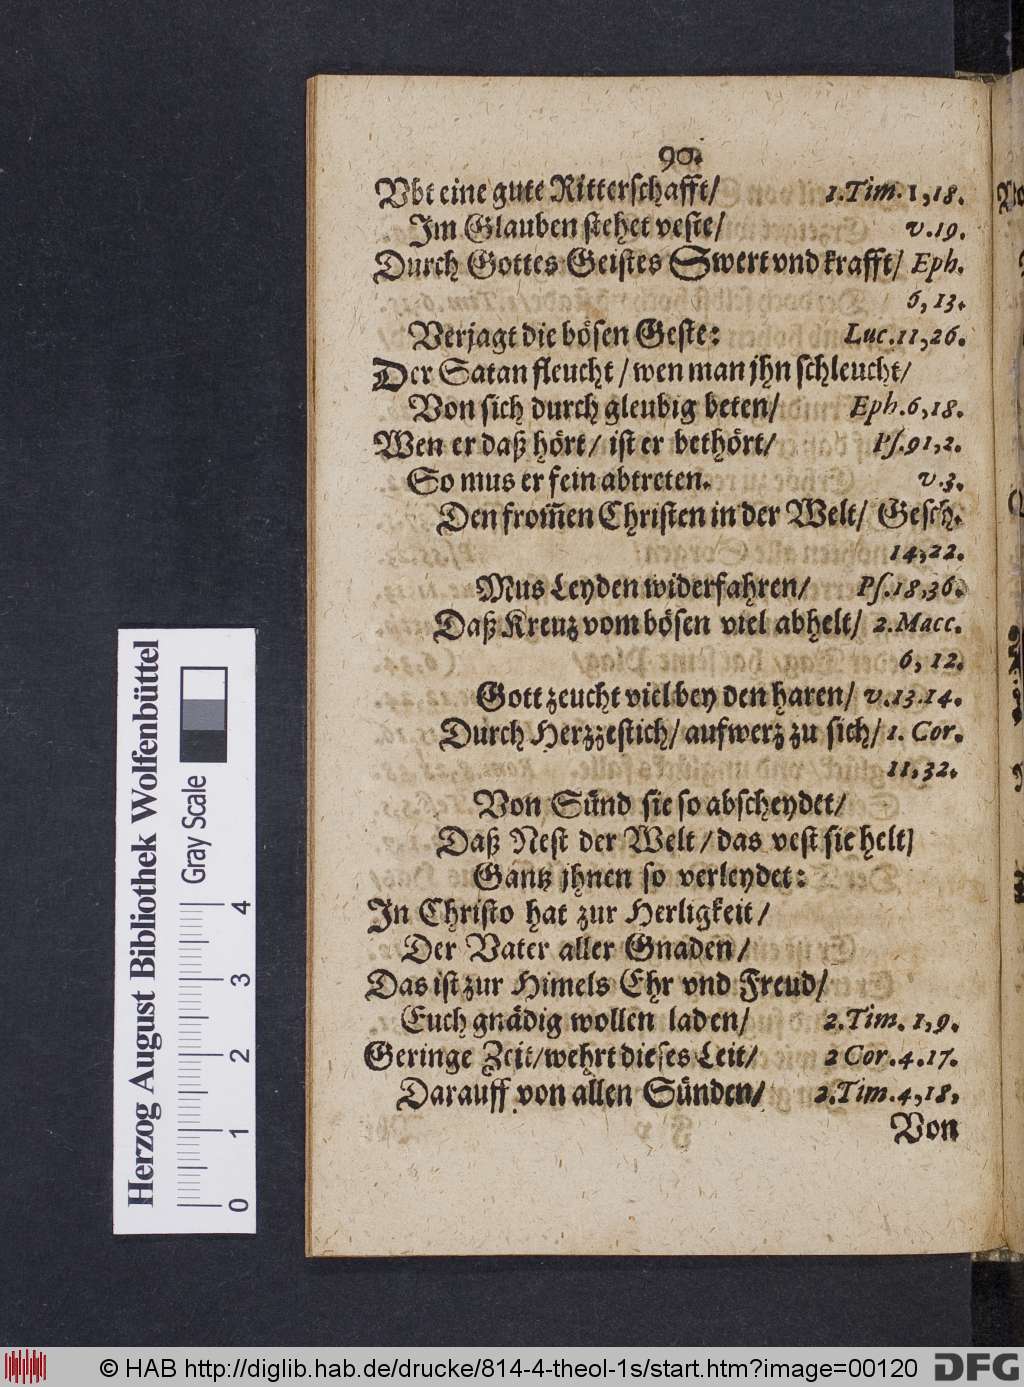 90.
Vbt eine gute Ritterschafft/ 1.Tim.1,18.
Im Glauben stehet veste/ v.19.
Durch Gottes Geistes Swert vnd krafft/ Eph.
6,13.
Verjagt die bösen Geste: Luc.11,26.
Der Satan fleucht/wen man jhn schleucht/
Von sich durch gleubig beten/ Eph.6,18.
Wen er daß hört/ ist er bethört/ Ps.91,2.
So mus er fein abtreten. v.3.
Den from̃en Christen in der Welt/ Gesch.
14,22.
Mus Leyden widerfahren/ Ps.18,36.
Daß Kreuz vom bösen viel abhelt/ 2.Macc.
6,12.
Gott zeucht viel bey den haren/ v.13.14.
Durch Herzzestich/ aufwerz zu sich/ 1. Cor.
11.32.
Von Sünd sie so abscheydet/
Daß Nest der Welt/das vest sie helt/
Gantz jhnen so verleydet:
In Christo hat zur Herligkeit/
Der Vater aller Gnaden/
Das ist zur Himels Ehr vnd Freud/
Euch gnädig wollen laden/ 2.Tim.1,9.
Geringe Zeit/wehrt dieses Leit/ 2 Cor.4.17.
Darauff von allen Sünden/ 2.Tim.4,18,
Von
Herzog August Bibliothek Wolfenbüttel
Gray Scale
0 1 2 3 4
© HAB http://diglib.hab.de/drucke/814-4-theol-1s/start.htm?image=00120
DFG